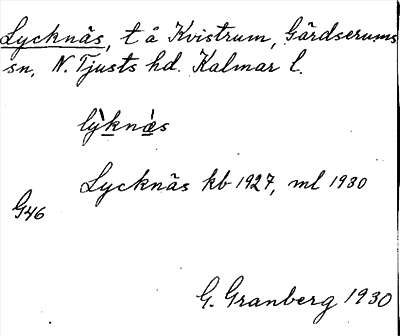 Lycknäs, t å Kvistrum, Gärdserums
sn, N. Tjusts hd. Kalmar l.
lỳknæ̀s
Lycknäs kb 1927, ml 1930
G46
G. Granberg 1930